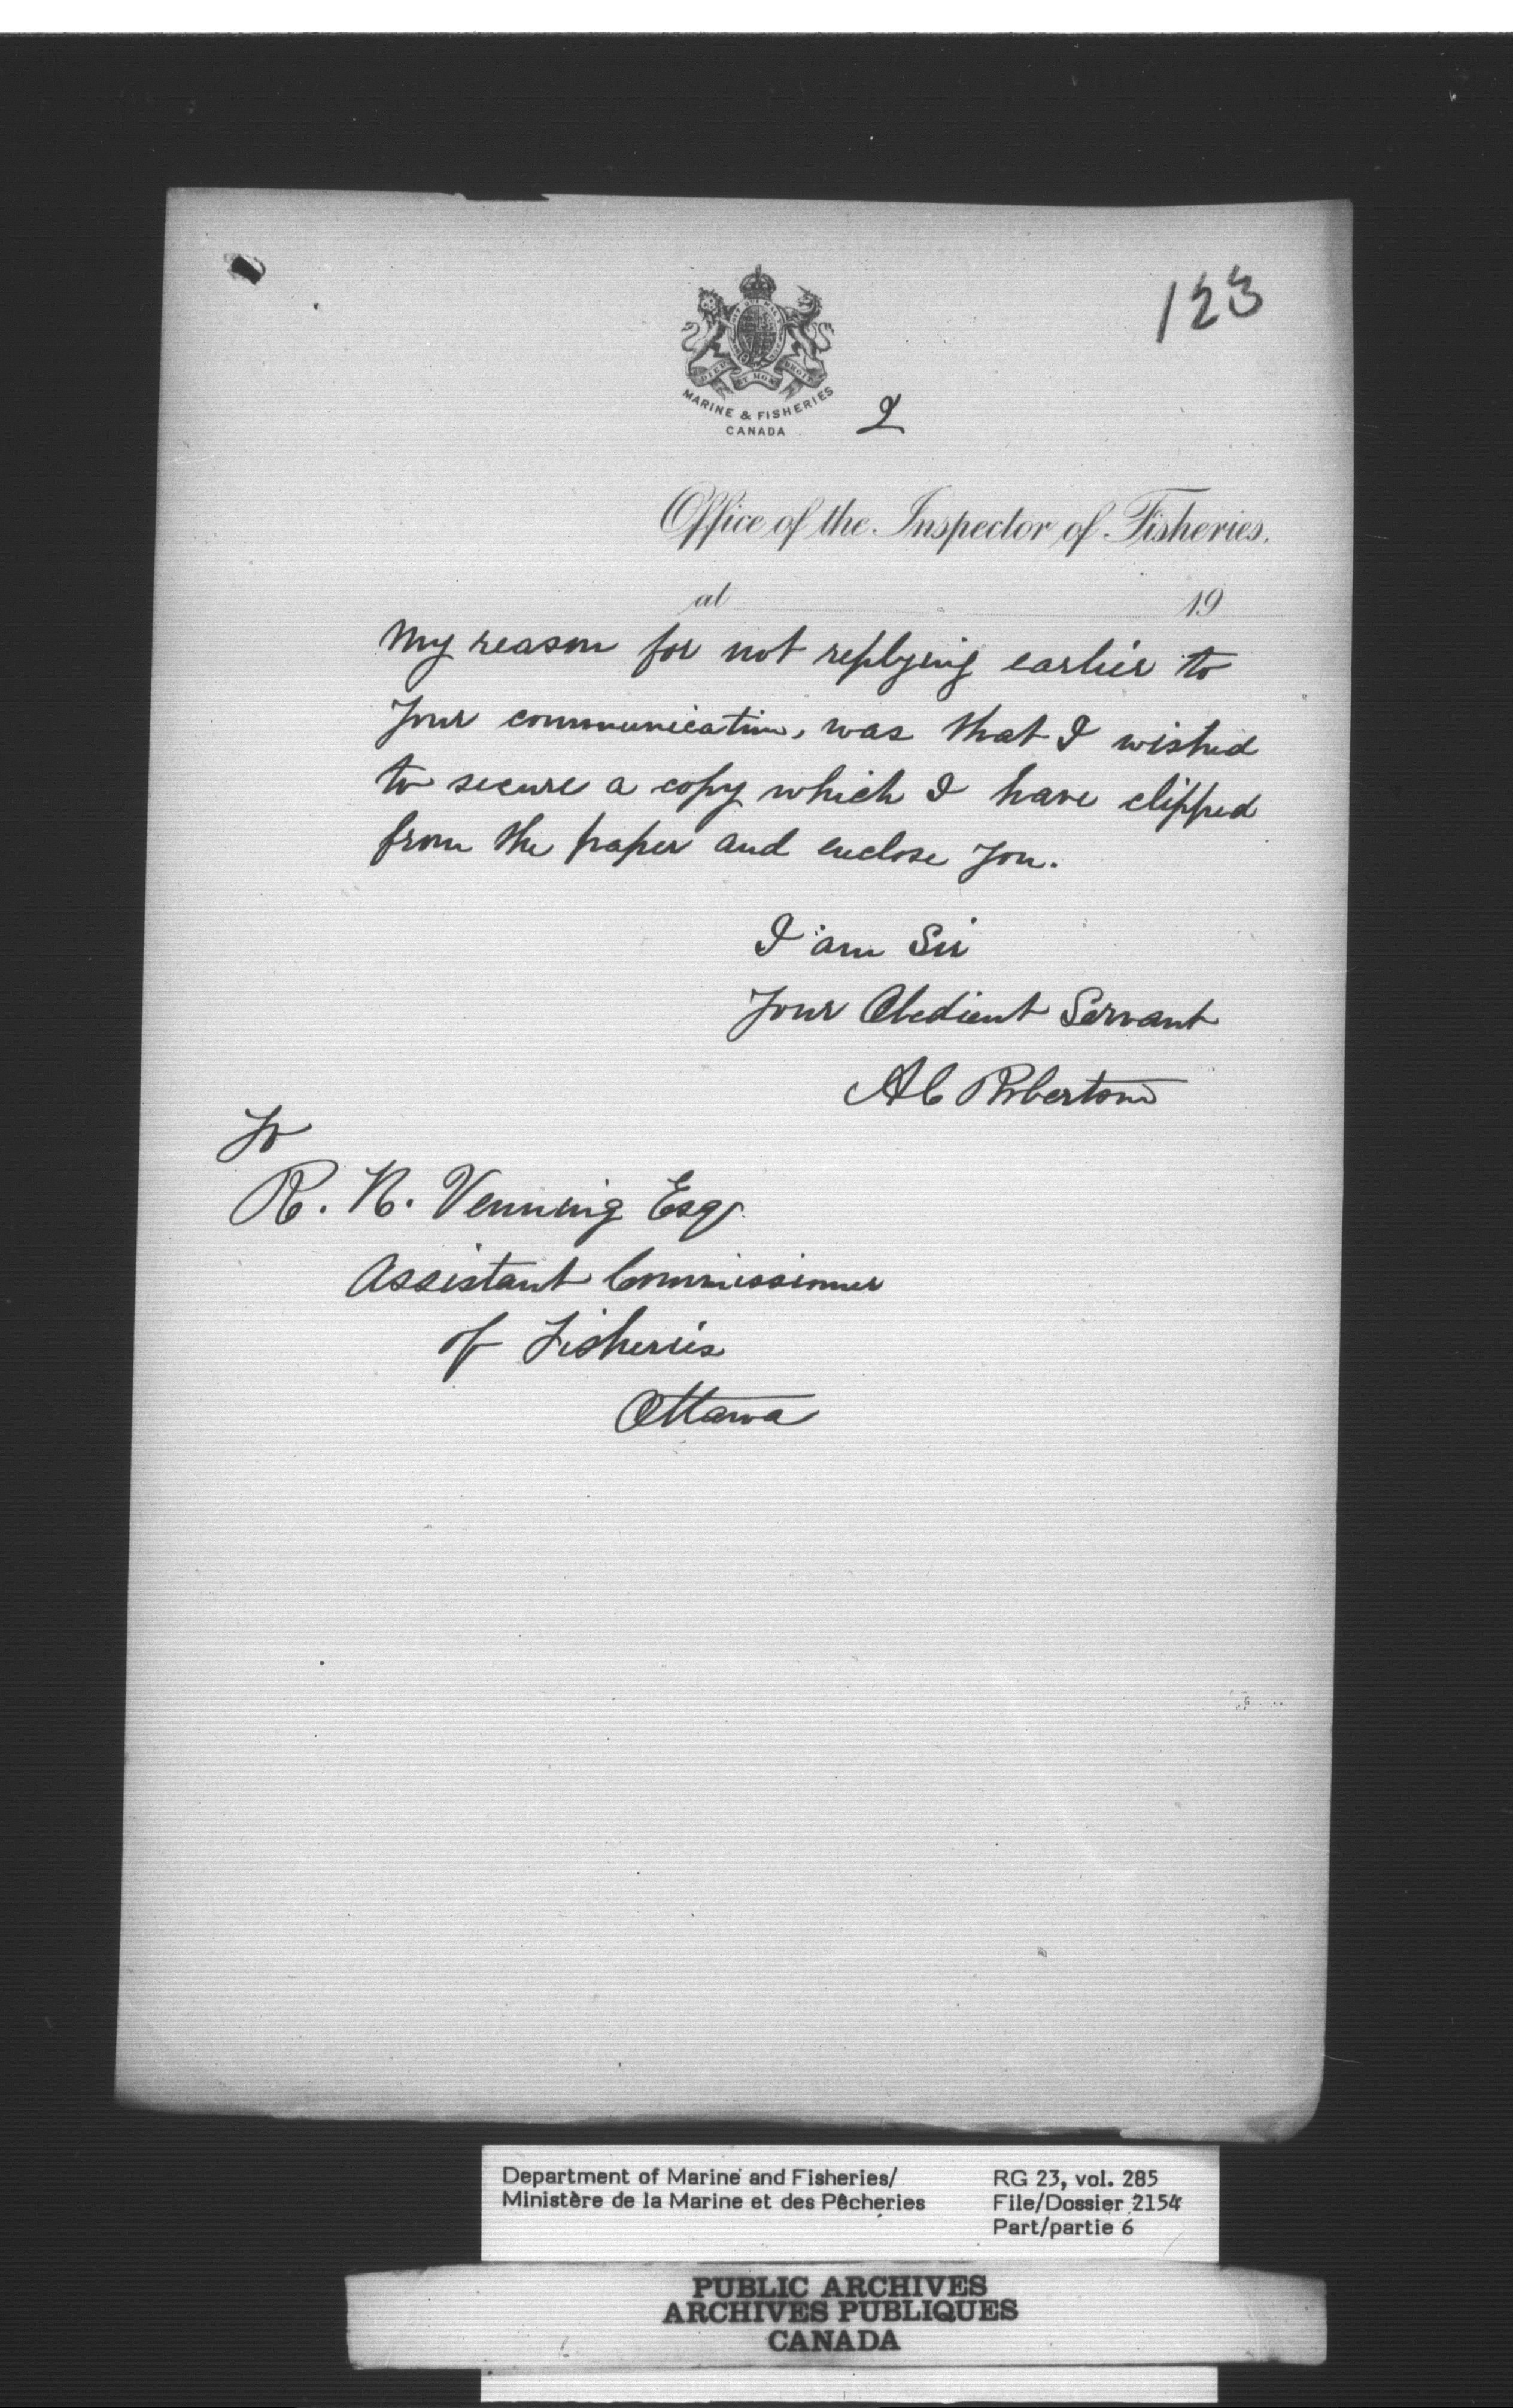 123
DIEU ET MON DROIT
MARINE & FISHERIES
CANADA
2
Office of the Inspector of Fisheries.
at 19
My reason for not replying earlier to
your communication, was that I wished
to secure a copy which I have clipped
from the paper and enclose you.
I am Sir
Your Obedient Servant
A C Robertson
To
R. N. Venning Esqr.
Assistant Commissioner
of Fisheries
Ottawa
Department of Marine and Fisheries/
Ministère de la Marine et des Pêcheries
RG 23, vol. 285
File/Dossier 2154
Part/partie 6
PUBLIC ARCHIVES
ARCHIVES PUBLIQUES
CANADA